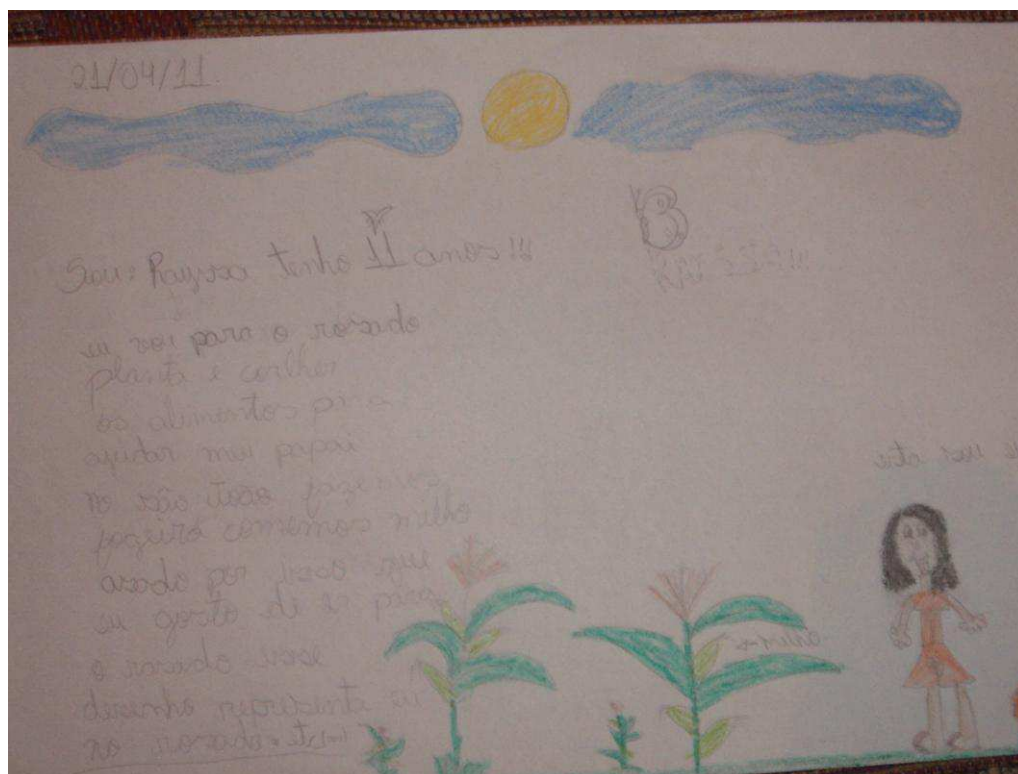 21/04/11
Sou: Rayssa tenho 11 anos!!!
RAYSSA!!!
eu vou para o rosado
planta e colher
os alimentos para
ajudar meu papai
no são João fazemos
fogeira comemos milho
asado por isso que
eu gosto de ir para
o rosado esse
desenho representa eu
no rosado